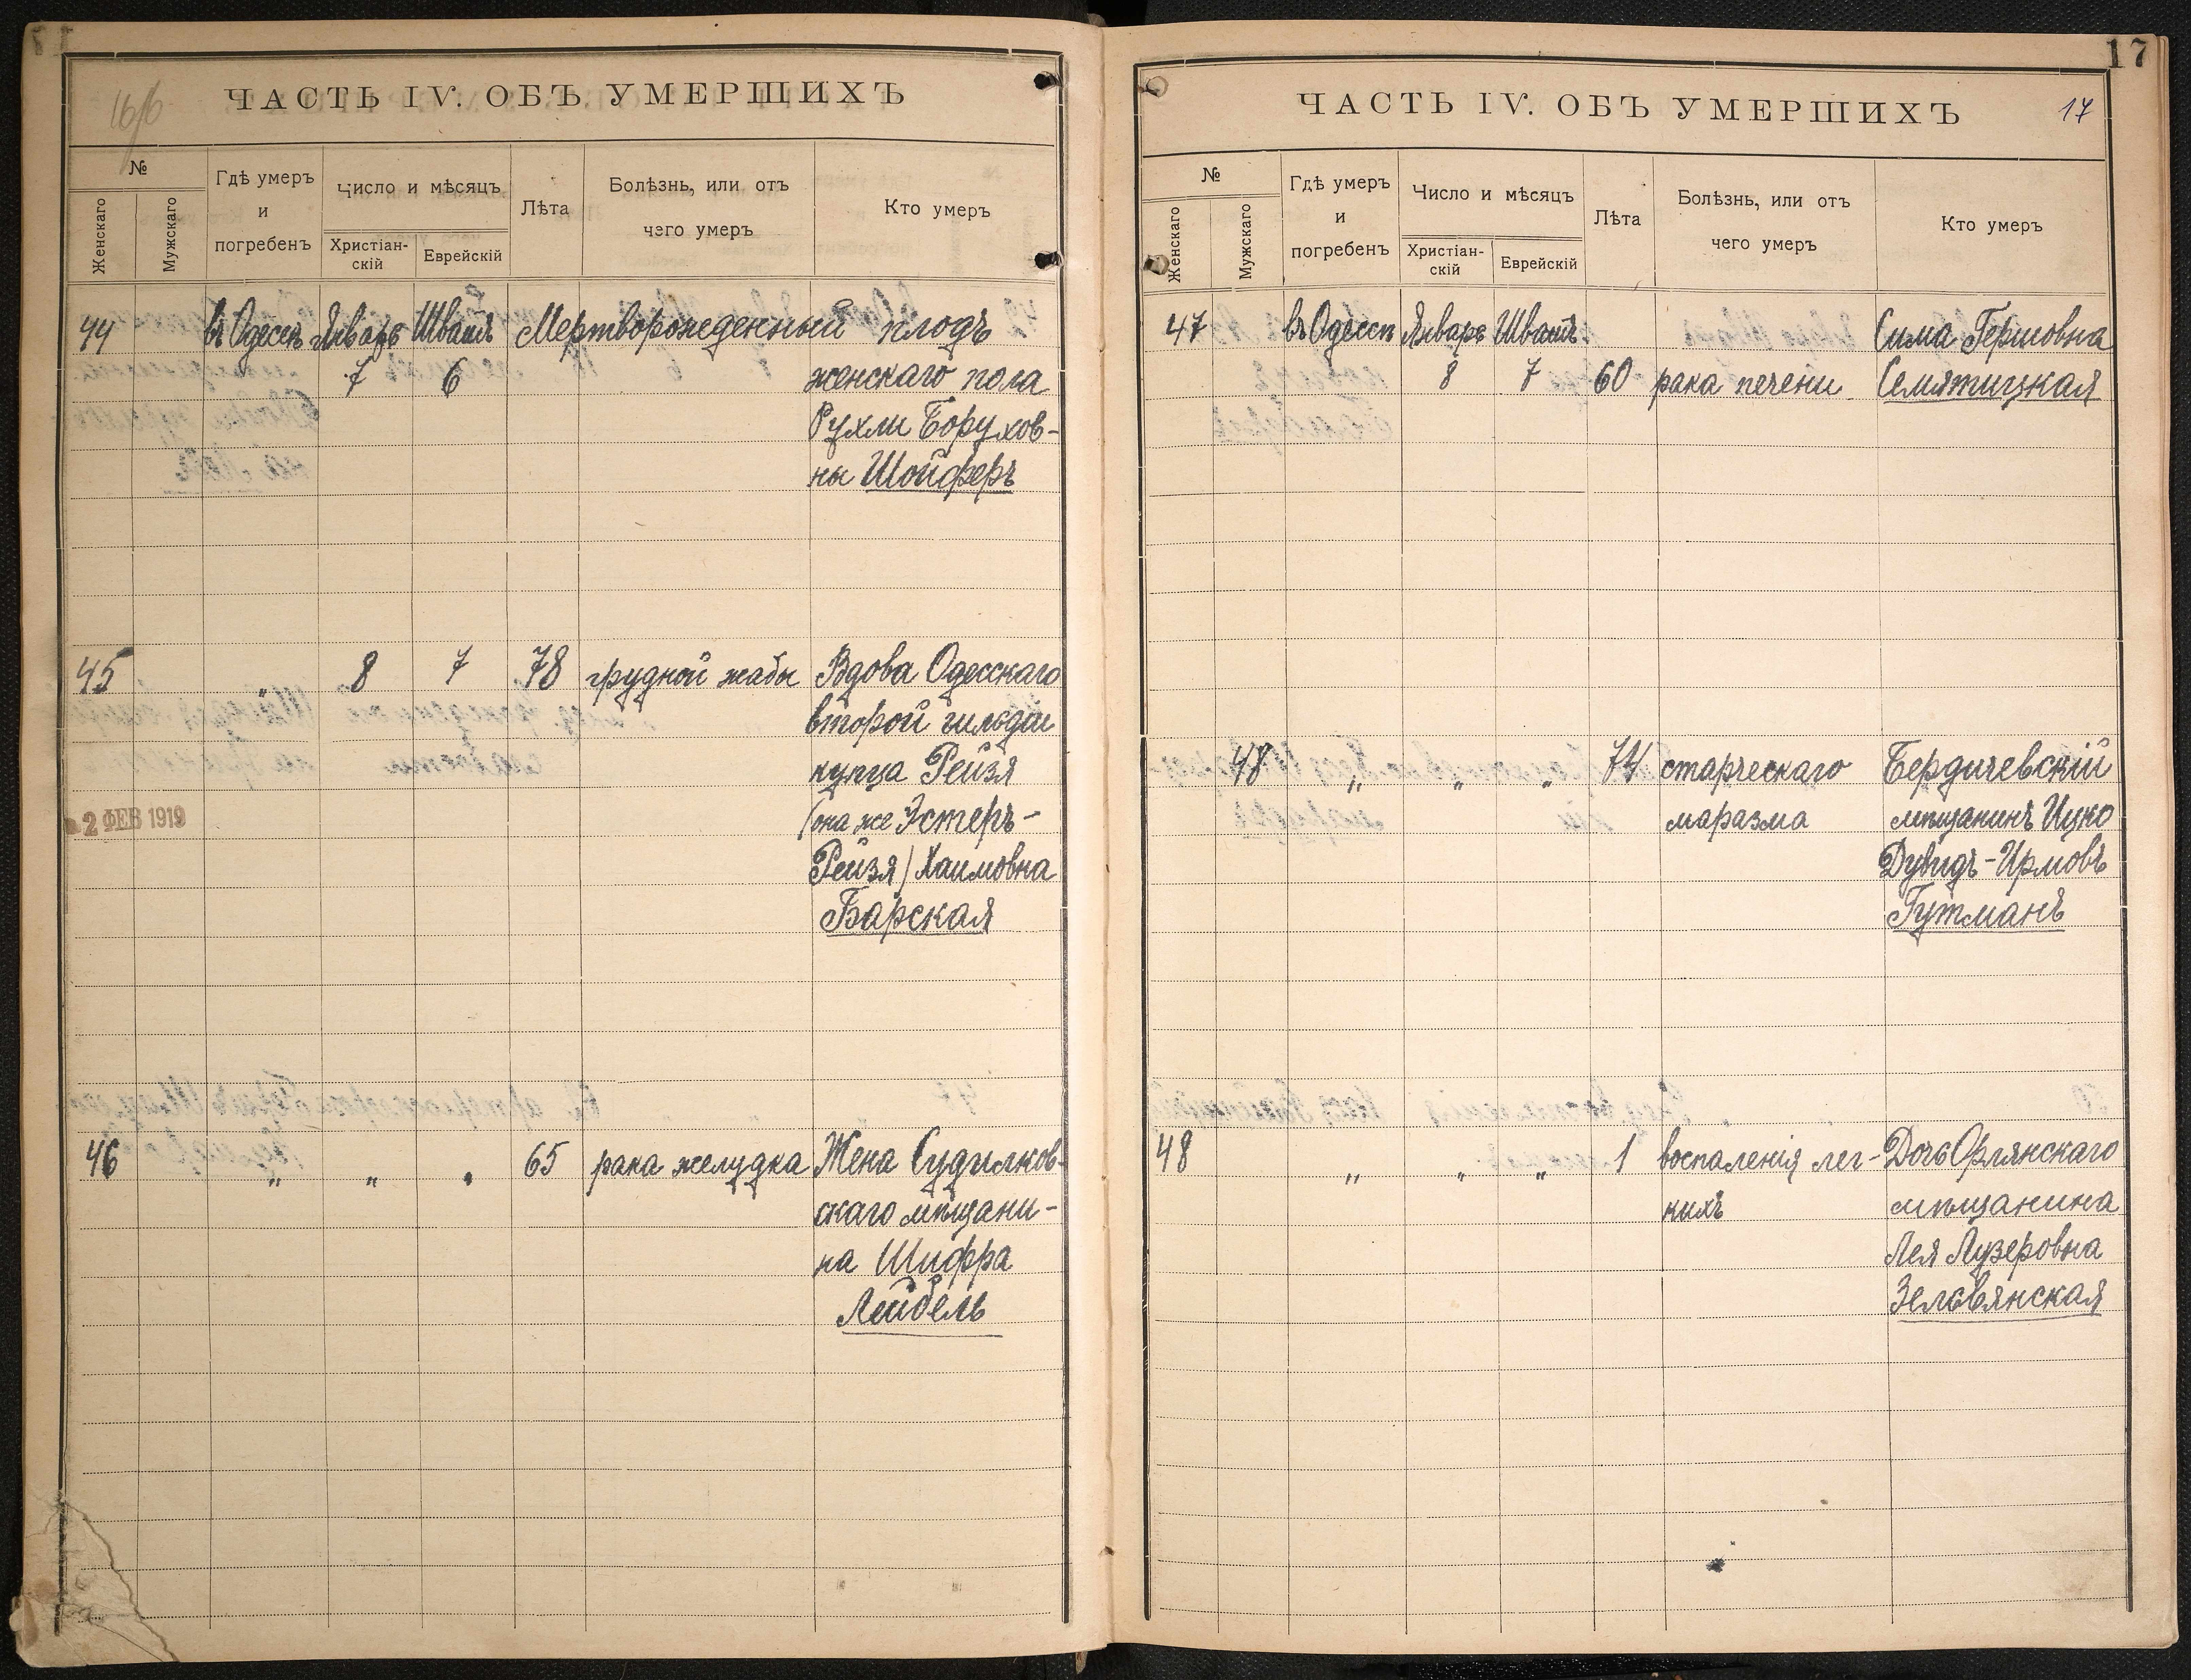 16/б
ЧАСТЬ IV. ОБЪ УМЕРШИХЪ
№
Женскаго
Мужскаго
Гдѣ умеръ
и
погребенъ
Число и мѣсяцъ
Христіан-
скій
Еврейскій
Лѣта
Болѣзнь, или отъ
чего умеръ
Кто умеръ
44 въ Одессѣ Январь Шватъ Мертворожденный плодъ
7 6 женскаго пола
Рухли Борухов-
ны Шойферъ
45 " 8 7 78 грудной жабы Вдова Одесскаго
второй гильдіи
купца Рейзя
(она же Эстеръ-
Рейзя) Хаимовна
Барская
2 ФЕВ 1919
46 " " " 65 рака желудка Жена Судилков-
скаго мѣщани-
на Шифра
Лейбель
17
ЧАСТЬ IV. ОБЪ УМЕРШИХЪ
17
№
Женскаго
Мужскаго
Гдѣ умеръ
и
погребенъ
Число и мѣсяцъ
Христіан-
скій
Еврейскій
Лѣта
Болѣзнь, или отъ
чего умеръ
Кто умеръ
47 въ Одессѣ Январь Шватъ Сима Гершовна
8 7 60 рака печени Семятицкая
48 " " " 74 старческаго Бердичевскій
маразма мѣщанинъ Ицко
Дувидъ-Ирмовъ
Гутманъ
48 " " " 1 воспаленія лег- Дочь Орлянскаго
кихъ мѣщанина
Лея Лузеровна
Зельвянская